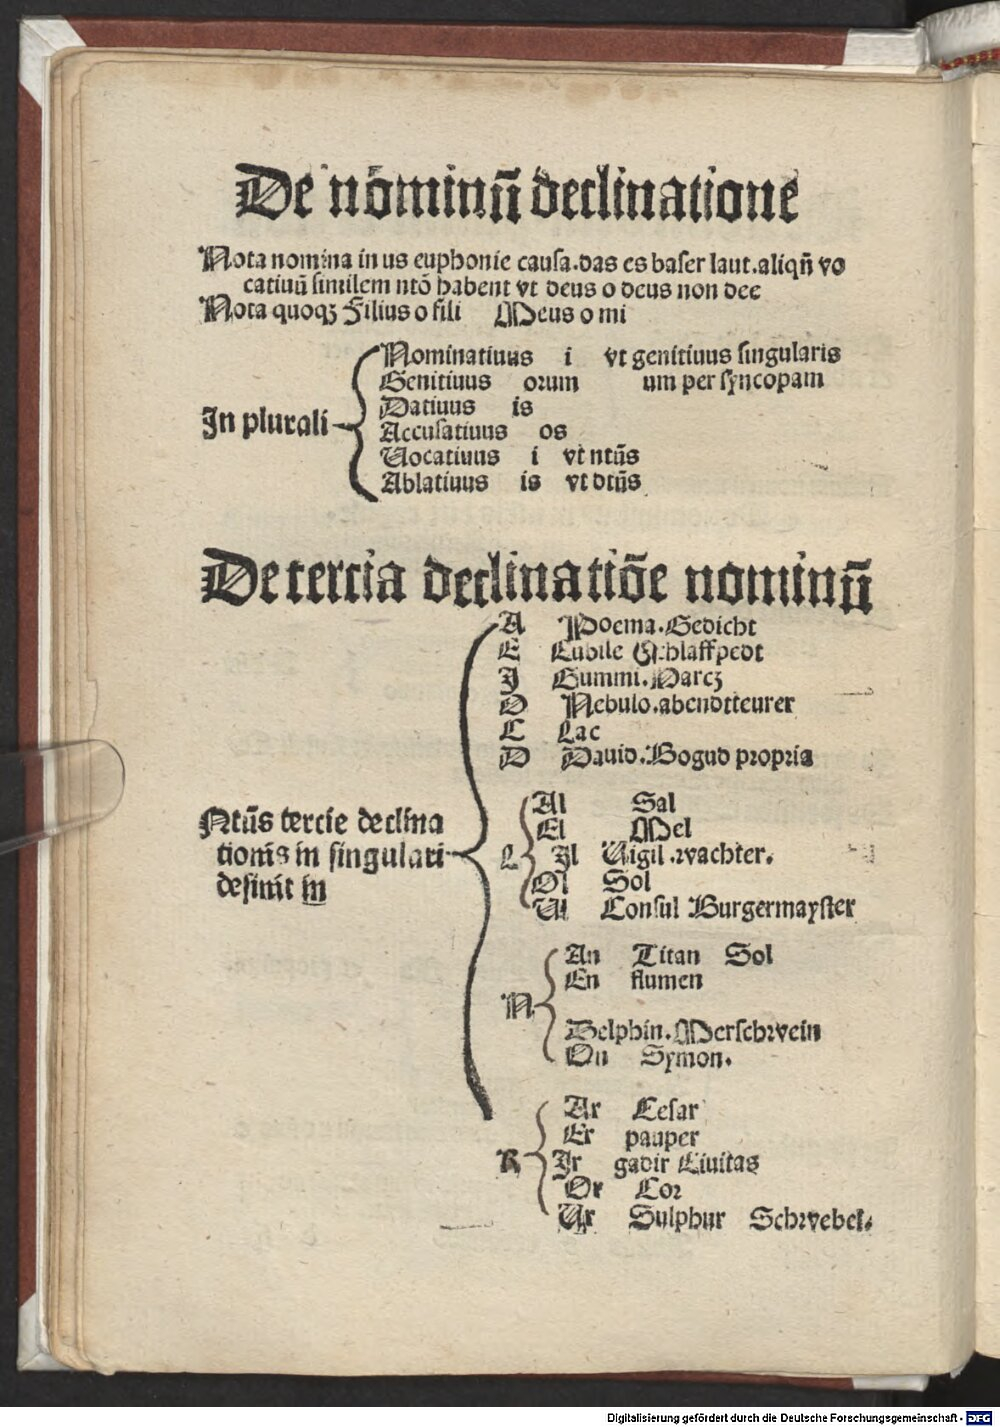 De nominū declinatione
Nota nomina in us euphonie causa.das es baser laut.aliqñ vo
catiuū similem ntō habent vt deus o deus non dee
Nota quoqꝫ Filius o fili Meus o mi
In plurali
Nominatiuus i vt genitiuus singularis
Genitiuus orum um per syncopam
Datiuus is
Accusatiuus os
Uocatiuus i vt ntūs
Ablatiuus is vt dtūs
De tercia declinatiōe nominū
Ntūs tercie declina
tionis in singulari
desinit in
A Poema.Gedicht
E Cubile Schlaffpedt
I Gummi.Harcz
O Nebulo.abendtteurer
C Lac
D Dauid.Bogud propria
L
Al Sal
El Mel
Il Uigil.wachter.
Ol Sol
Ul Consul Burgermayster
N
An Titan Sol
En flumen
Delphin.Merschwein
On Symon.
R
Ar Cesar
Er pauper
Ir gadir Ciuitas
Or Cor
Ur Sulphur Schwebel.
Digitalisierung gefördert durch die Deutsche Forschungsgemeinschaft - DFG